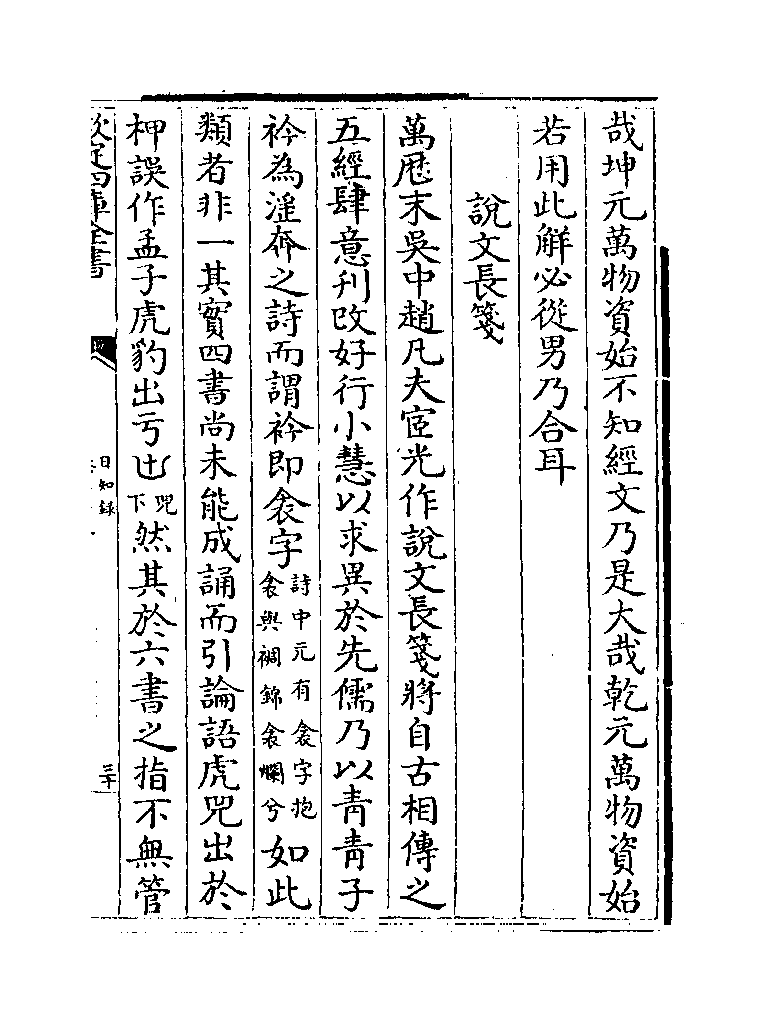 哉坤元萬物資始不知經文乃是大哉乾元萬物資始
若用此解必從男乃合耳
說文長箋
萬厯末吳中趙凡夫宧光作說文長箋將自古相傳之
五經肆意刋改好行小慧以求異於先儒乃以青青子
衿為淫奔之詩而謂衿即衾字詩中元有衾字抱衾與裯錦衾爛兮如此
類者非一其實四書尚未能成誦而引論語虎兕出於
柙誤作孟子虎豹出亏兕下然其於六書之指不無管
欽定四庫全書
日知錄
三十